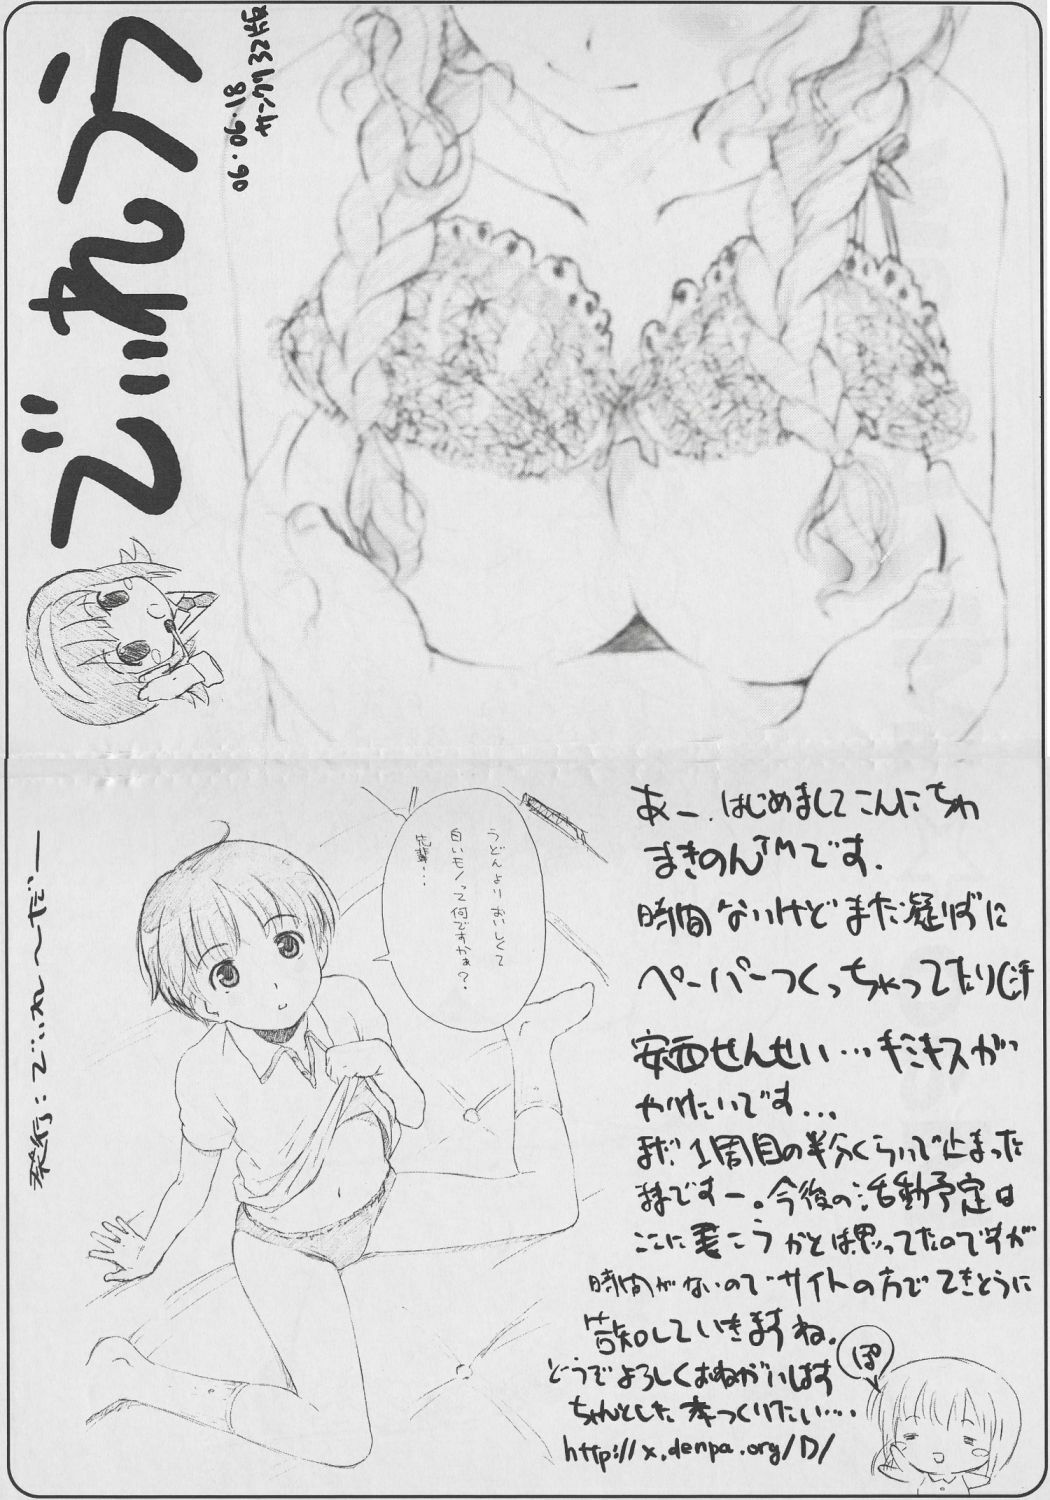 でいれう
06.06.18
サンクリ32版
うどんより おいしくて
白いモノって何ですかぁ?
先輩…
あー、はじめましてこんにちわ
まきのん™です.
時間ないけどまた凝りずに
ペーパーつくっちゃってたり(汗
安西せんせい…キミキスが
やりたいです...
まだ1周目の半分くらいで止まった
ままですー。今後の活動予定は
ここに書こうかとは思ってたのですが
時間がないのでサイトの方でてきとうに
告知していきますね.
どうぞよろしくおねがいします
ちゃんとした本つくりたい…
http://x.denpa.org/D/
ぽ
発行:でいれ〜だー